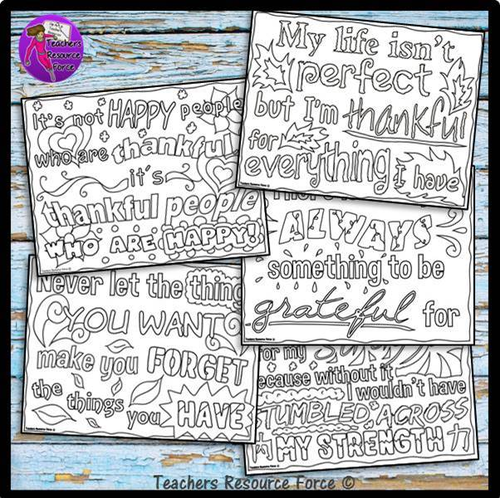 Teachers
Resource
Force
It's not HAPPY people
who are thankful
it's
thankful people
WHO ARE HAPPY!
My life isn't
perfect
but I'm thankful
for
everything I have
ALWAYS
something to be
grateful for
Never let the thing
YOU WANT
make you FORGET
the things you HAVE
for my
because without it
I wouldn't have
TUMBLED ACROSS
MY STRENGTH
Teachers Resource Force ©